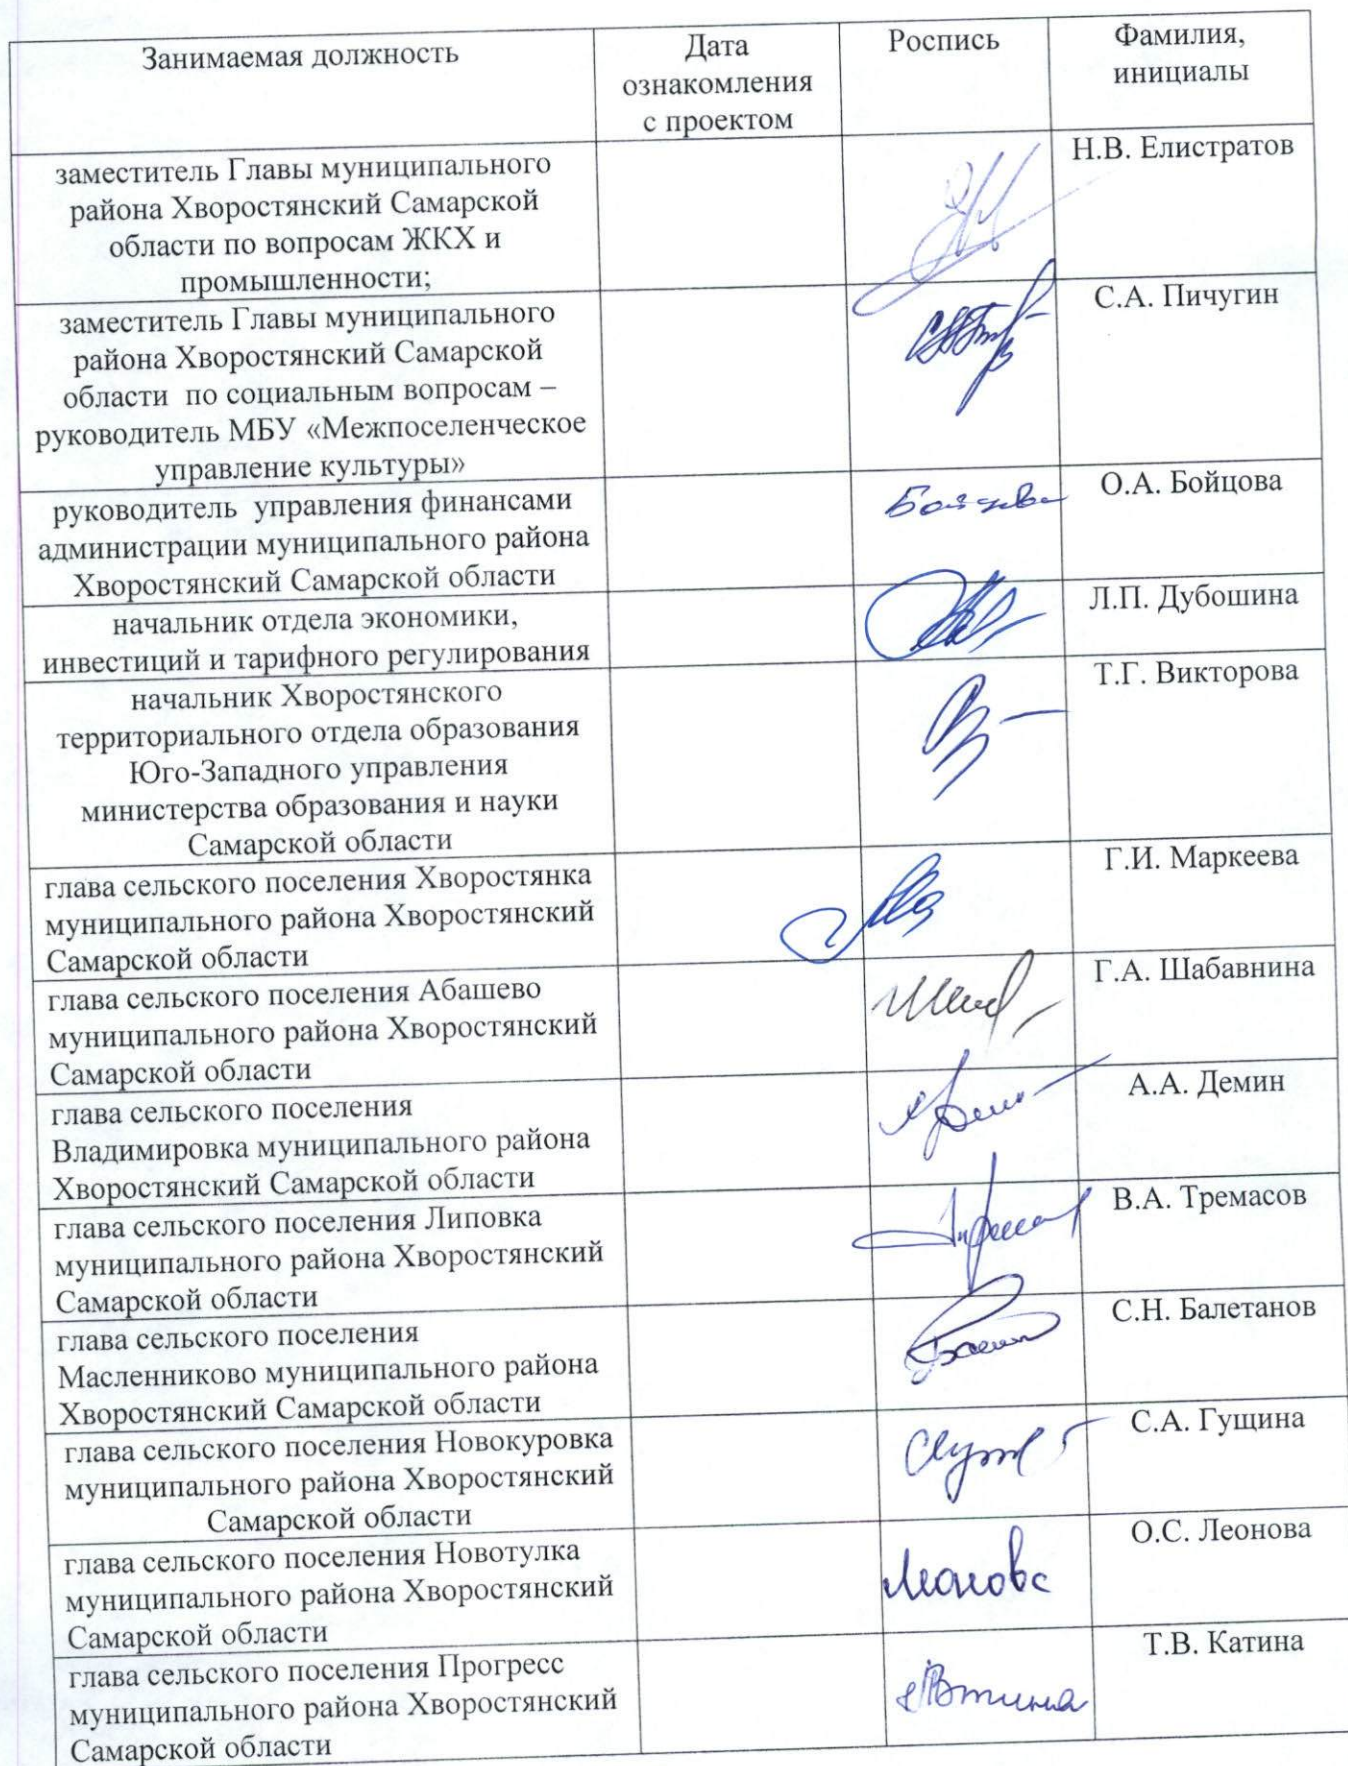 Занимаемая должность
Дата
ознакомления
с проектом
Роспись
Фамилия,
инициалы
заместитель Главы муниципального
района Хворостянский Самарской
области по вопросам ЖКХ и
промышленности;
Н.В. Елистратов
заместитель Главы муниципального
района Хворостянский Самарской
области по социальным вопросам –
руководитель МБУ «Межпоселенческое
управление культуры»
С.А. Пичугин
руководитель управления финансами
администрации муниципального района
Хворостянский Самарской области
Бойцова
О.А. Бойцова
начальник отдела экономики,
инвестиций и тарифного регулирования
Л.П. Дубошина
начальник Хворостянского
территориального отдела образования
Юго-Западного управления
министерства образования и науки
Самарской области
Т.Г. Викторова
глава сельского поселения Хворостянка
муниципального района Хворостянский
Самарской области
Г.И. Маркеева
глава сельского поселения Абашево
муниципального района Хворостянский
Самарской области
Г.А. Шабавнина
глава сельского поселения
Владимировка муниципального района
Хворостянский Самарской области
А.А. Демин
глава сельского поселения Липовка
муниципального района Хворостянский
Самарской области
В.А. Тремасов
глава сельского поселения
Масленниково муниципального района
Хворостянский Самарской области
С.Н. Балетанов
глава сельского поселения Новокуровка
муниципального района Хворостянский
Самарской области
С.А. Гущина
глава сельского поселения Новотулка
муниципального района Хворостянский
Самарской области
Леонова
О.С. Леонова
глава сельского поселения Прогресс
муниципального района Хворостянский
Самарской области
Т.В. Катина